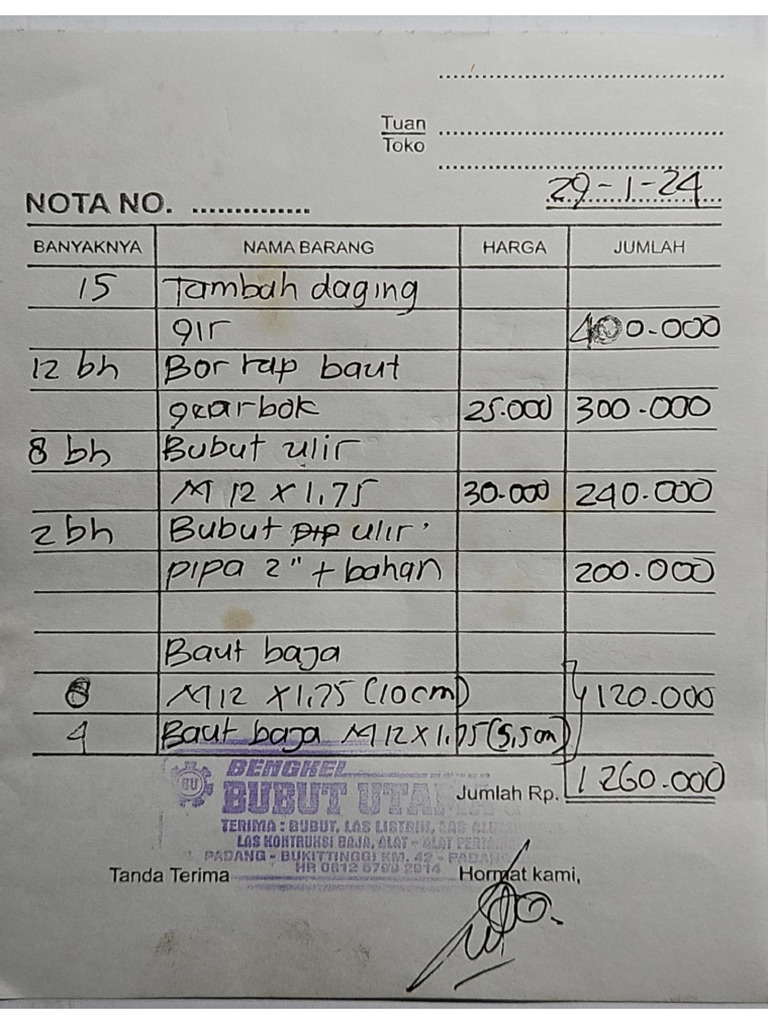 Tuan
Toko
29-1-24
NOTA NO. ..............
BANYAKNYA NAMA BARANG HARGA JUMLAH
15 Tambah daging
gir 400.000
12 bh Bor tap baut
gearbok 25.000 300.000
8 bh Bubut ulir
M 12 x 1,75 30.000 240.000
2 bh Bubut ulir
pipa 2" + bahan 200.000
Baut baja
8 M12 x 1,75 (10cm) 120.000
4 Baut baja M12 x 1,75 (5,5cm)
Jumlah Rp. 1260.000
BU
BENGKEL
BUBUT UTAMA
TERIMA : BUBUT, LAS LISTRIK, LAS
LAS KONTRUKSI BAJA, ALAT - ALAT
PADANG - BUKITTINGGI KM. 42 -
HP 0812 6799 2914
Tanda Terima Hormat kami,